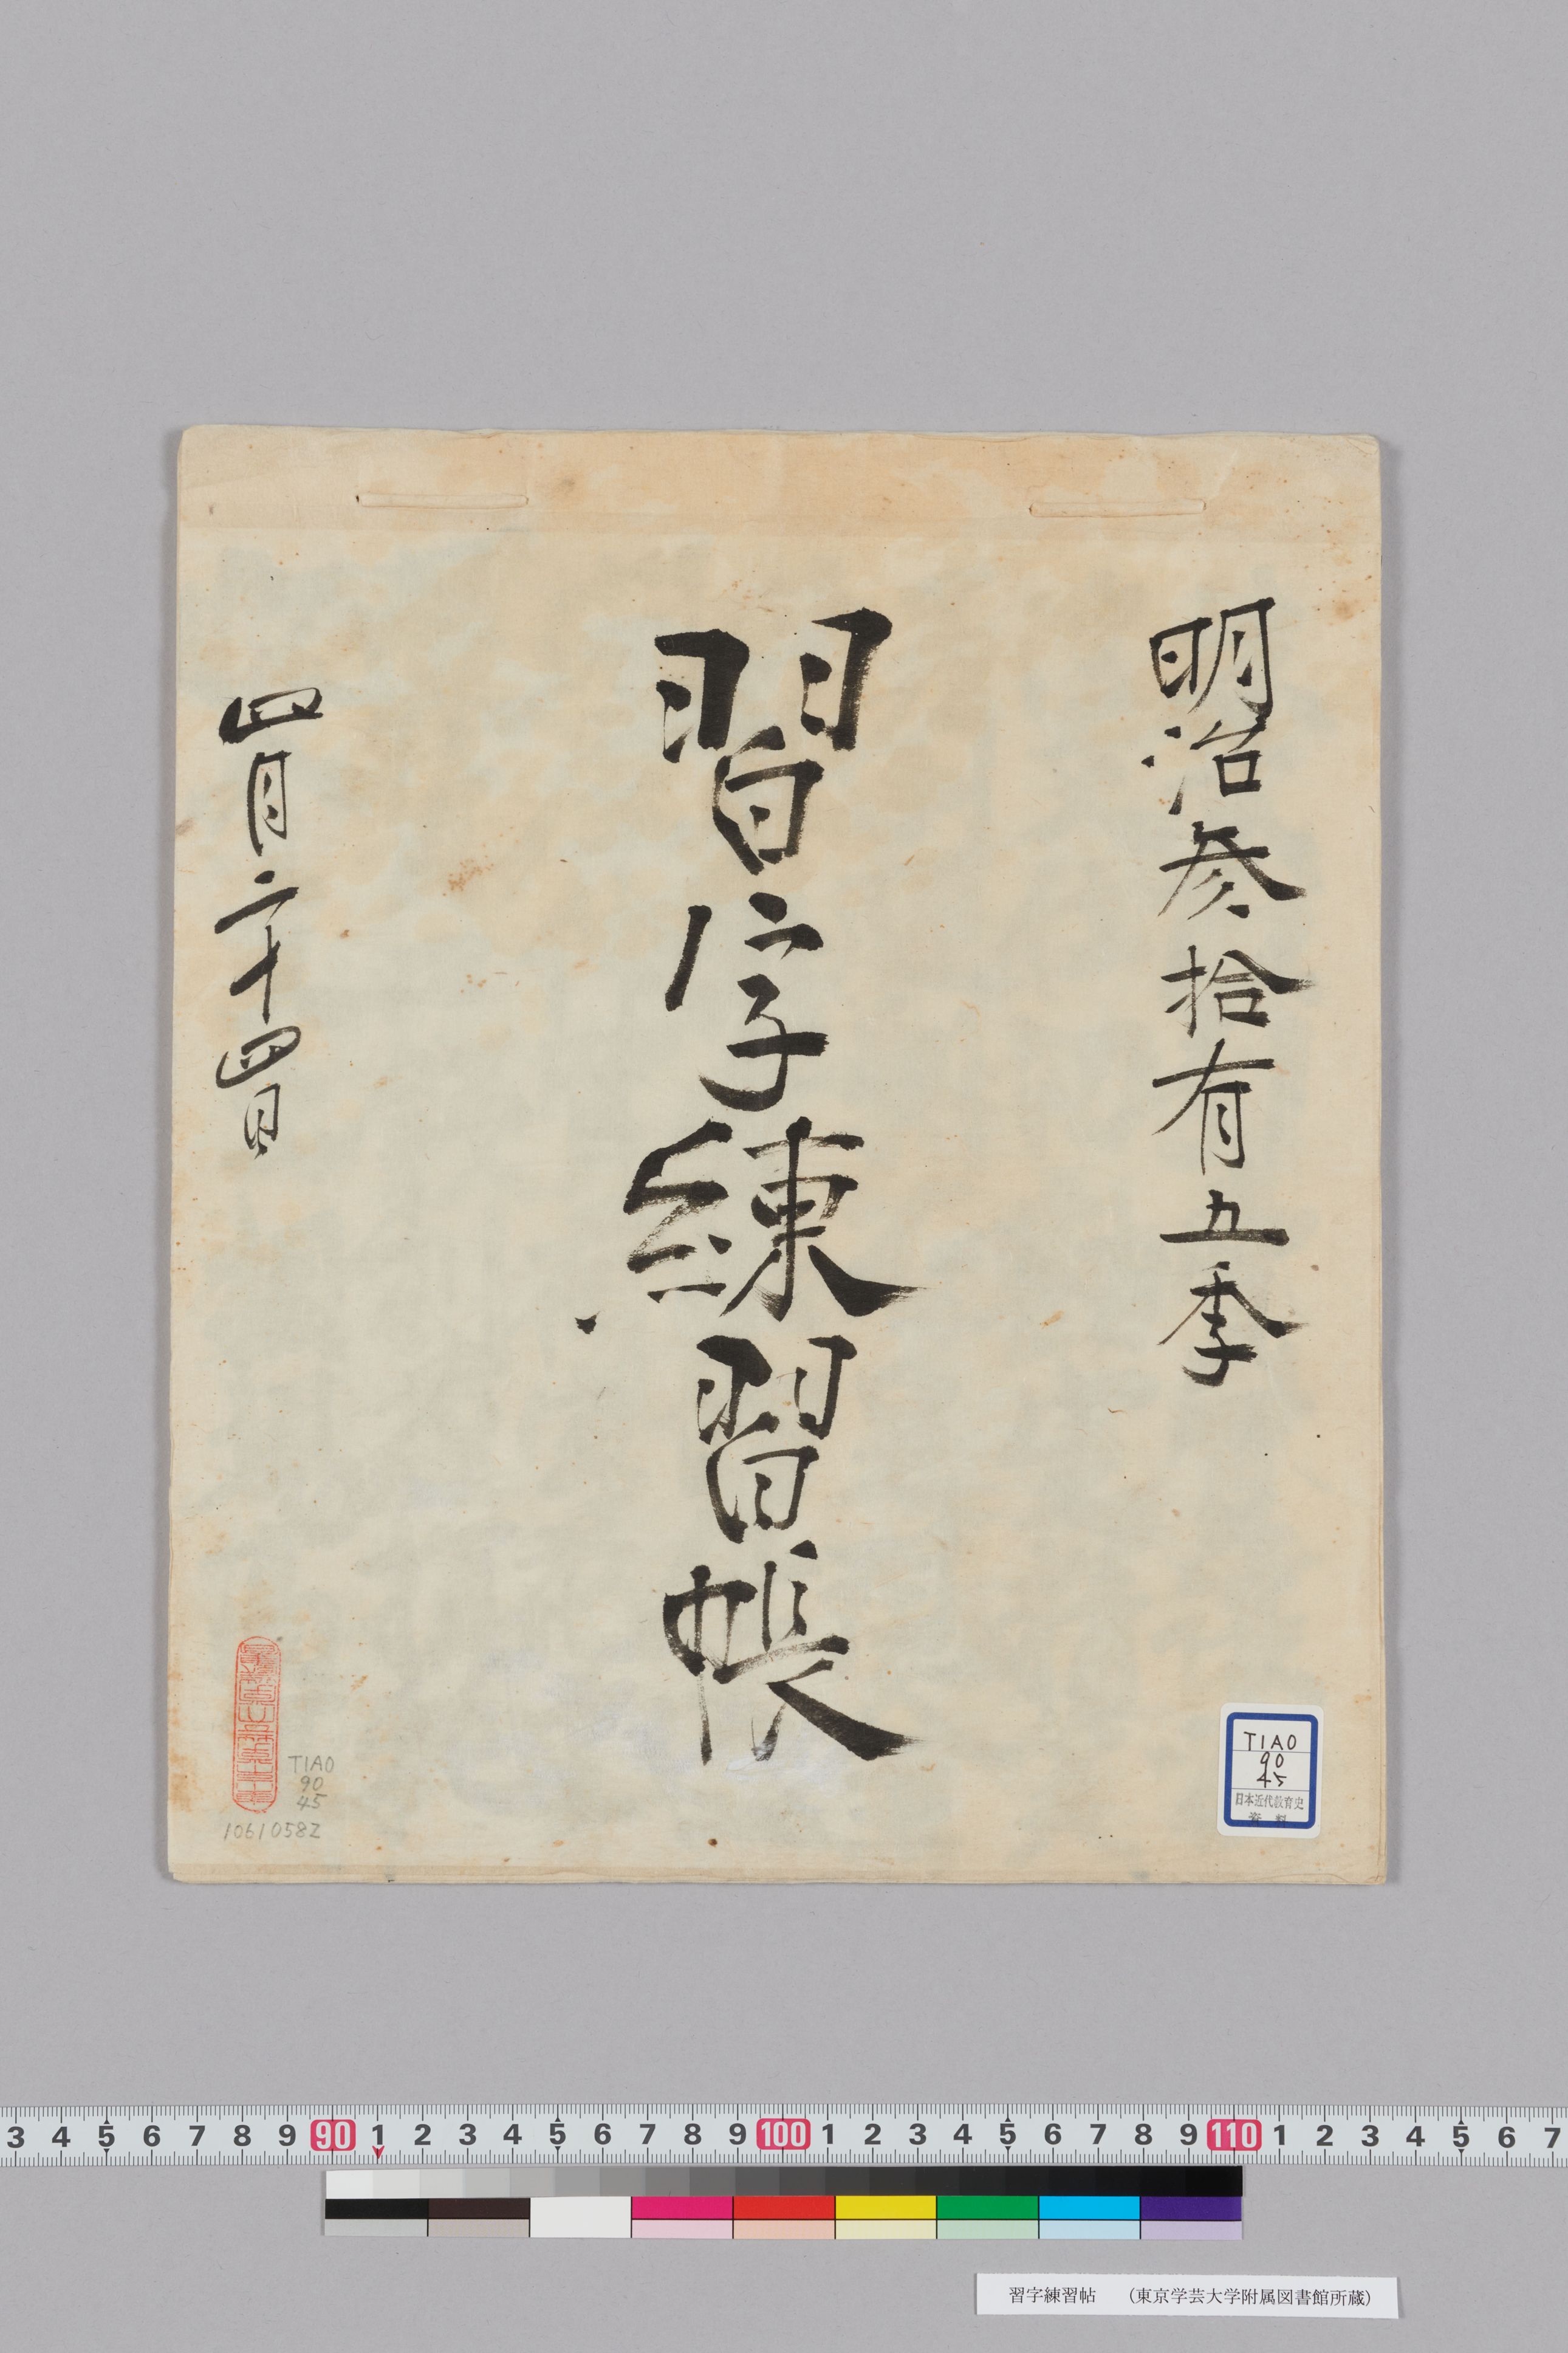 明治参拾有五季
習字練習帳
四月二十四日
TIAO
90
45
10610582
TIAO
90
45
日本近代教育史
資料
3 4 5 6 7 8 9 90 1 2 3 4 5 6 7 8 9 100 1 2 3 4 5 6 7 8 9 110 1 2 3 4 5 6 7
習字練習帖 (東京学芸大学附属図書館所蔵)